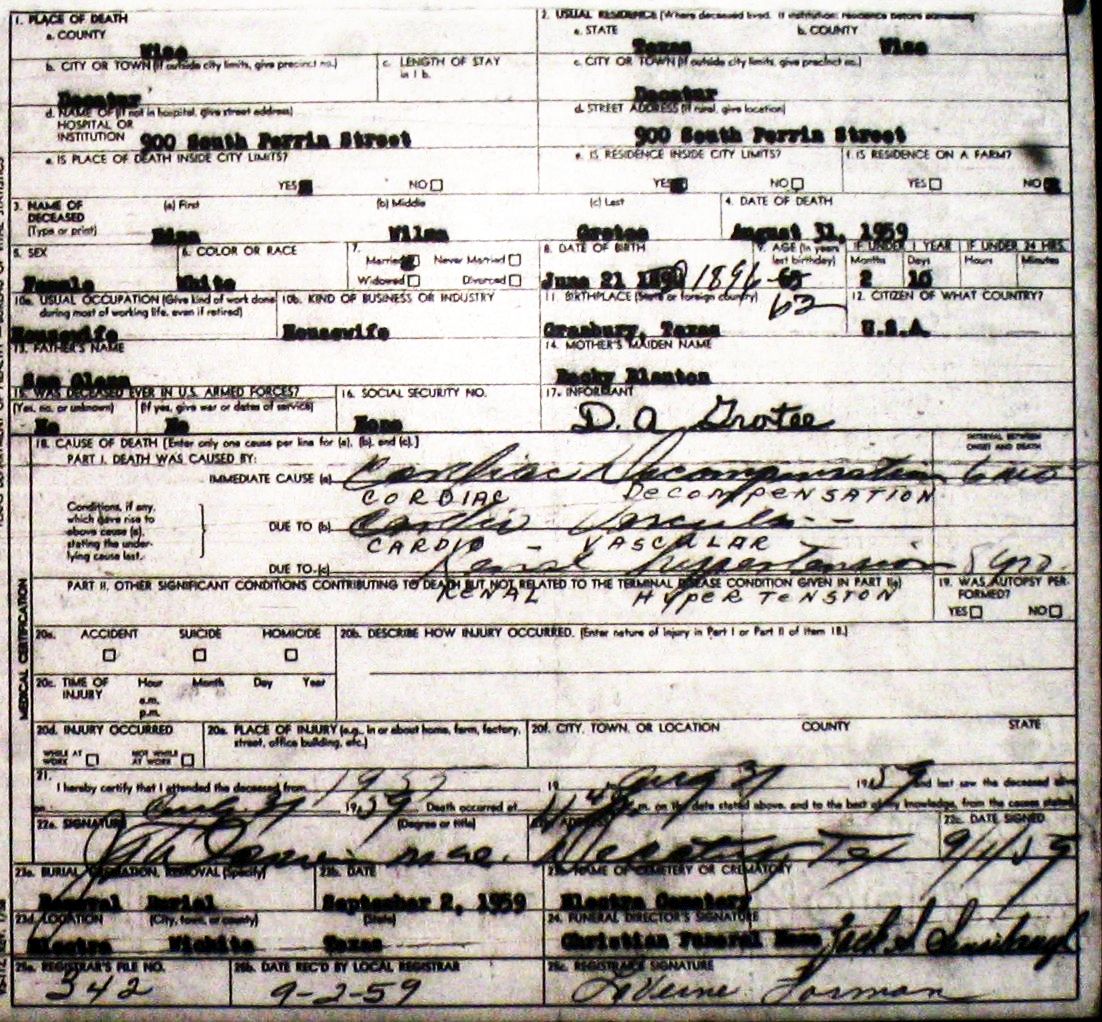 1. PLACE OF DEATH
a. COUNTY
Wise
2. USUAL RESIDENCE (Where deceased lived. If institution: residence before admission)
a. STATE
Texas
b. COUNTY
Wise
b. CITY OR TOWN (If outside city limits, give precinct no.)
Decatur
c. LENGTH OF STAY in 1 b.
c. CITY OR TOWN (If outside city limits, give precinct no.)
Decatur
d. NAME OF (If not in hospital, give street address)
HOSPITAL OR
INSTITUTION 900 South Perrin Street
d. STREET ADDRESS (If rural, give location)
900 South Perrin Street
e. IS PLACE OF DEATH INSIDE CITY LIMITS?
YES NO
e. IS RESIDENCE INSIDE CITY LIMITS?
YES NO
f. IS RESIDENCE ON A FARM?
YES NO
3. NAME OF DECEASED (Type or print)
(a) First (b) Middle (c) Last
Wilma Grotee
4. DATE OF DEATH
August 31, 1959
5. SEX
Female
6. COLOR OR RACE
White
7.
Married Never Married
Widowed Divorced
8. DATE OF BIRTH
June 21 1896
9. AGE (In years last birthday)
63
IF UNDER 1 YEAR IF UNDER 24 HRS.
Months Days Hours Minutes
2 10
10a. USUAL OCCUPATION (Give kind of work done during most of working life, even if retired)
Housewife
10b. KIND OF BUSINESS OR INDUSTRY
Housewife
11. BIRTHPLACE (State or foreign country)
Granbury, Texas
12. CITIZEN OF WHAT COUNTRY?
U.S.A.
13. FATHER'S NAME
Sam Glenn
14. MOTHER'S MAIDEN NAME
Blanton
15. WAS DECEASED EVER IN U.S. ARMED FORCES?
(Yes, no, or unknown) (If yes, give war or dates of service)
No No
16. SOCIAL SECURITY NO.
None
17. INFORMANT
D. A Grotee
18. CAUSE OF DEATH [Enter only one cause per line for (a), (b), and (c).]
INTERVAL BETWEEN ONSET AND DEATH
PART I. DEATH WAS CAUSED BY:
IMMEDIATE CAUSE (a) Cardiac Decompensation 6 mos
CORDIAC DECOMPENSATION
Conditions, if any, which gave rise to above cause (a), stating the underlying cause last.
DUE TO (b) Cardio Vascular
CARDIO - VASCULAR
DUE TO (c) Renal Hypertension 5 yrs.
RENAL HYPERTENSION
PART II. OTHER SIGNIFICANT CONDITIONS CONTRIBUTING TO DEATH BUT NOT RELATED TO THE TERMINAL DISEASE CONDITION GIVEN IN PART I(a)
19. WAS AUTOPSY PERFORMED?
YES NO
MEDICAL CERTIFICATION
20a. ACCIDENT SUICIDE HOMICIDE
20b. DESCRIBE HOW INJURY OCCURRED. (Enter nature of injury in Part I or Part II of Item 18.)
20c. TIME OF INJURY
Hour Month Day Year
a.m.
p.m.
20d. INJURY OCCURRED
WHILE AT WORK NOT WHILE AT WORK
20e. PLACE OF INJURY (e.g., in or about home, farm, factory, street, office building, etc.)
20f. CITY, TOWN, OR LOCATION COUNTY STATE
21.
I hereby certify that I attended the deceased from 1955 19 Aug 31 1959 and last saw the deceased alive
on Aug. 31 1959 Death occurred at m. on the date stated above, and to the best of my knowledge, from the causes stated.
22a. SIGNATURE (Degree or title)
22b. ADDRESS
Decatur, Tex
22c. DATE SIGNED
9/1/59
23a. BURIAL, CREMATION, REMOVAL (Specify)
Removal Burial
23b. DATE
September 2, 1959
23c. NAME OF CEMETERY OR CREMATORY
Electra Cemetery
23d. LOCATION (City, town, or county) (State)
Electra Wichita Texas
24. FUNERAL DIRECTOR'S SIGNATURE
Christian Funeral Home
25a. REGISTRAR'S FILE NO.
342
25b. DATE REC'D BY LOCAL REGISTRAR
9-2-59
25c. REGISTRAR'S SIGNATURE
LaVerne Forman